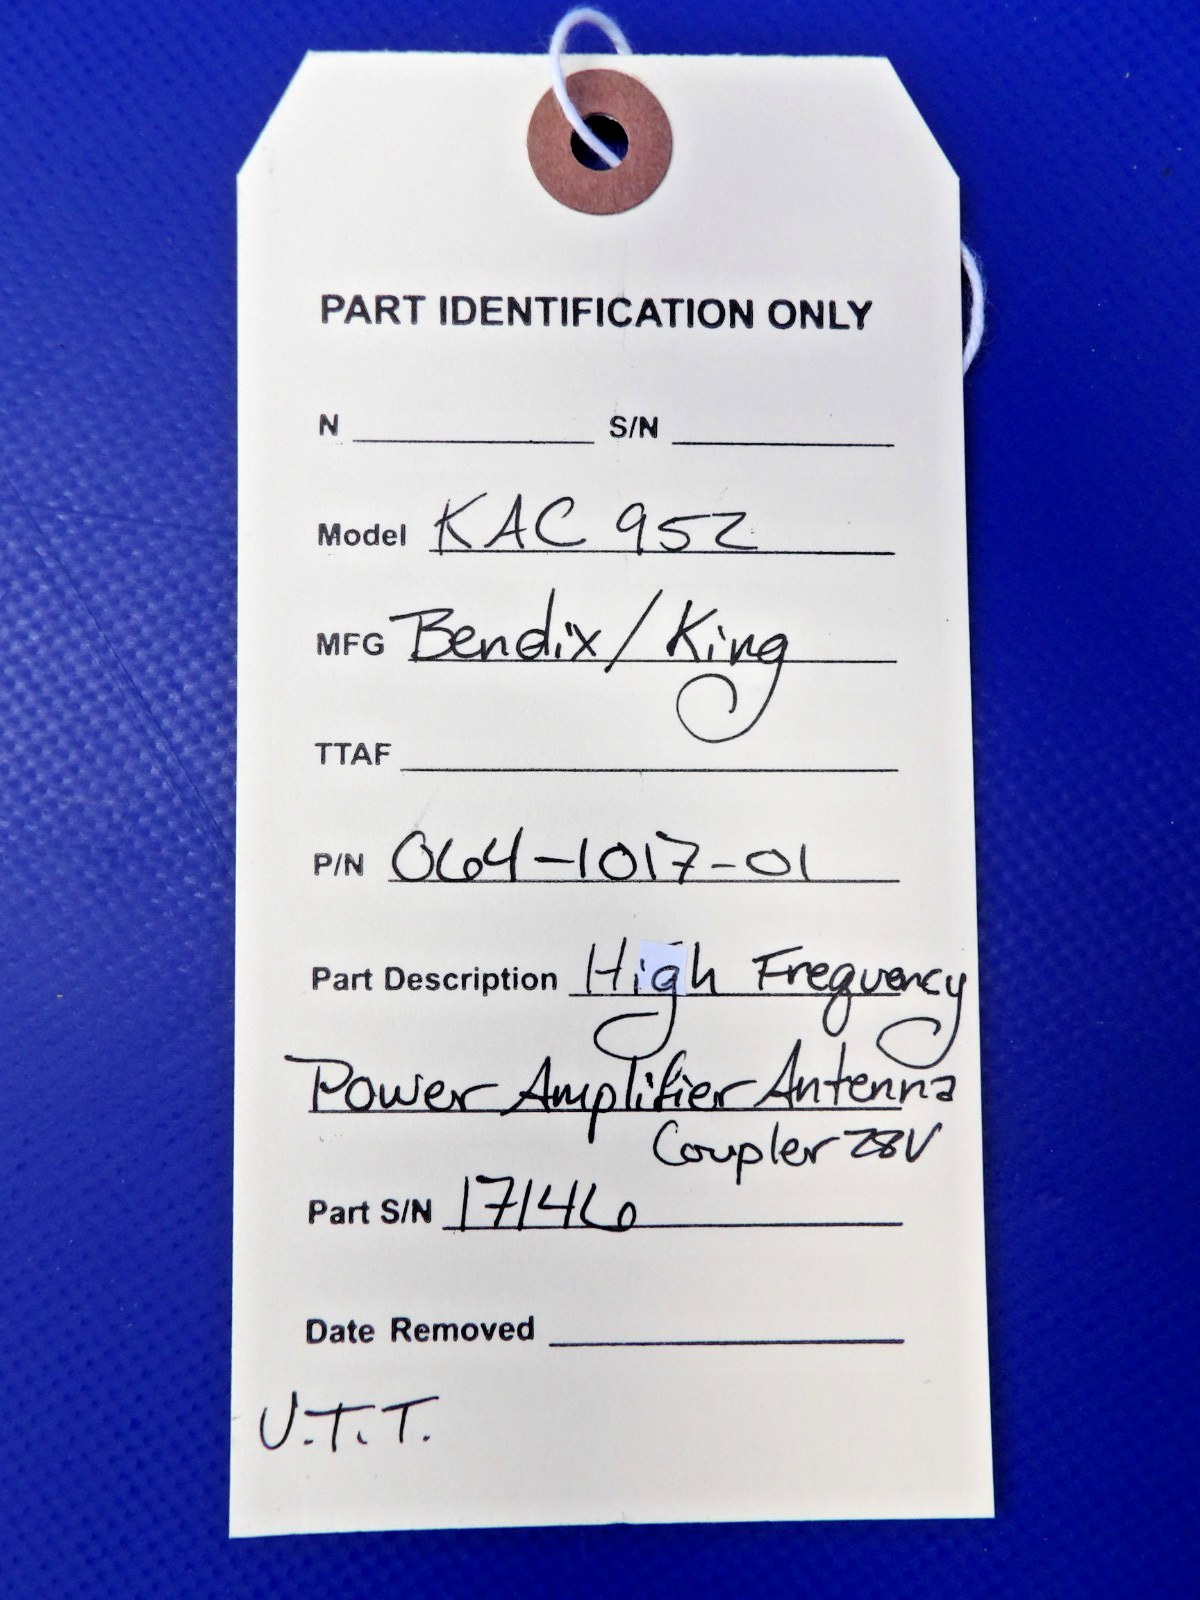 PART IDENTIFICATION ONLY
N S/N
Model KAC 952
MFG Bendix/King
TTAF
P/N 064-1017-01
Part Description High Frequency
Power Amplifier Antenna
Coupler 28V
Part S/N 17146
Date Removed
U.T.T.